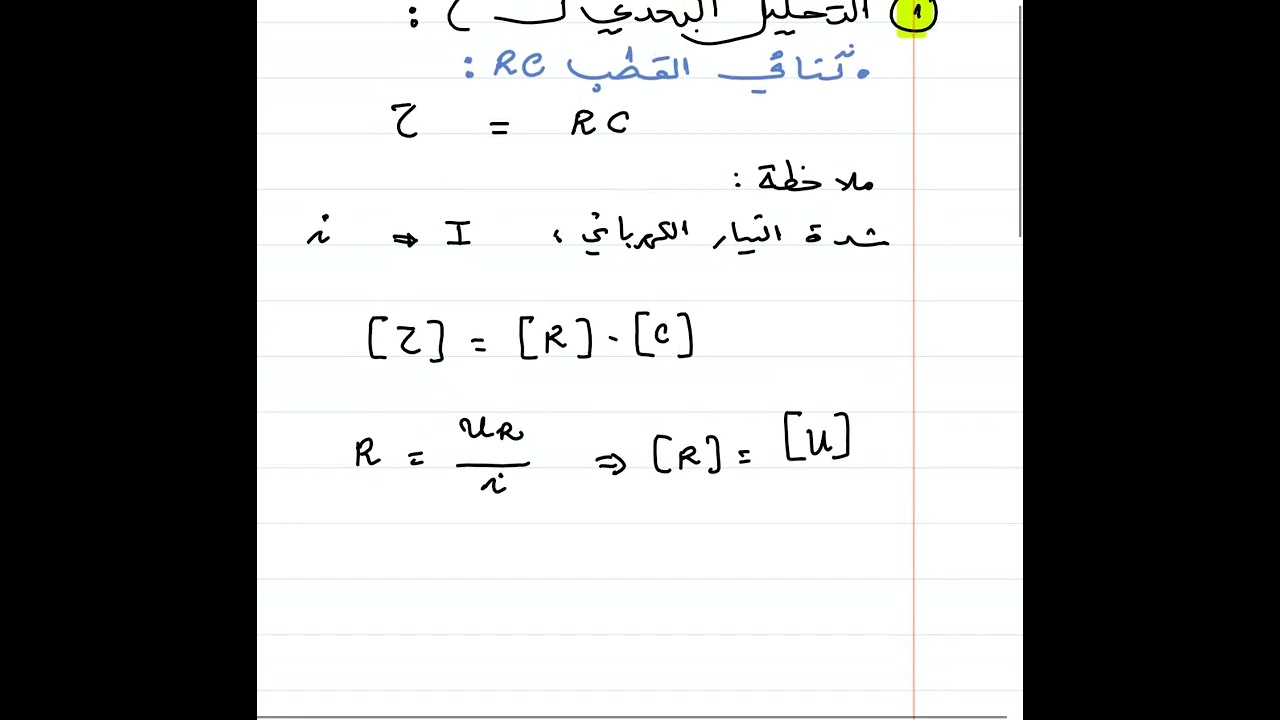 1 التحليل البعدي لـ τ :
• ثنائي القطب RC :
τ = RC
ملاحظة :
شدة التيار الكهربائي ، I ⇒ i
[τ] = [R] · [C]
R = u_R / i ⇒ [R] = [U]